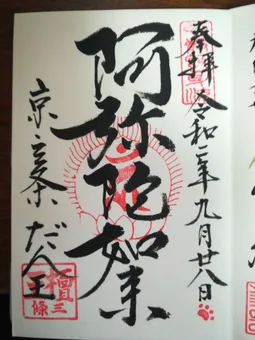 奉拝 令和二年九月廿八日
阿弥陀如来
京・三条 だん王
檀
三條